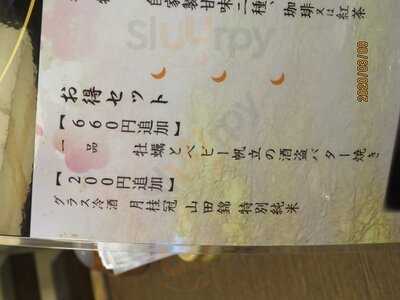 自家製甘味三種、珈琲又は紅茶
お得セット
【660円追加】
一品　牡蠣とベビー帆立の酒盗バター焼き
【200円追加】
グラス冷酒　月桂冠　山田錦　特別純米
2020/03/09
Sluurpy